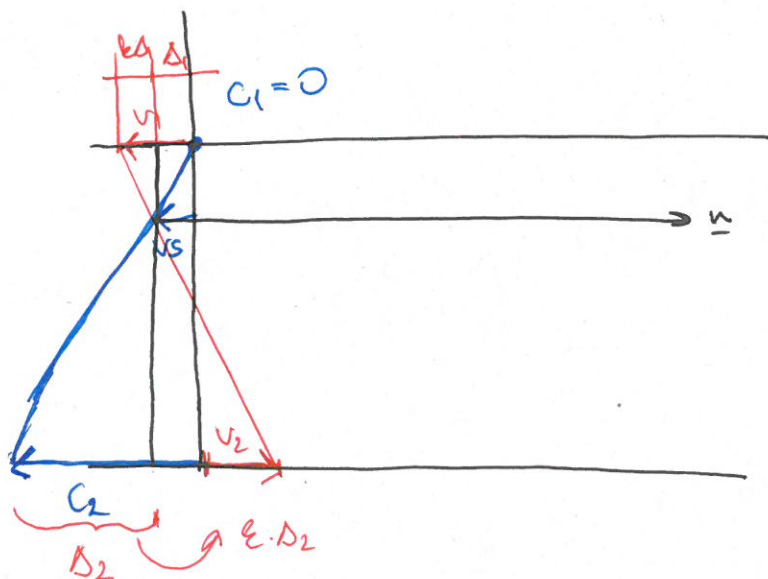 kΔ₁ Δ₁
C₁ = 0
v₁
vs
n
v₂
C₂
Δ₂
ε.Δ₂